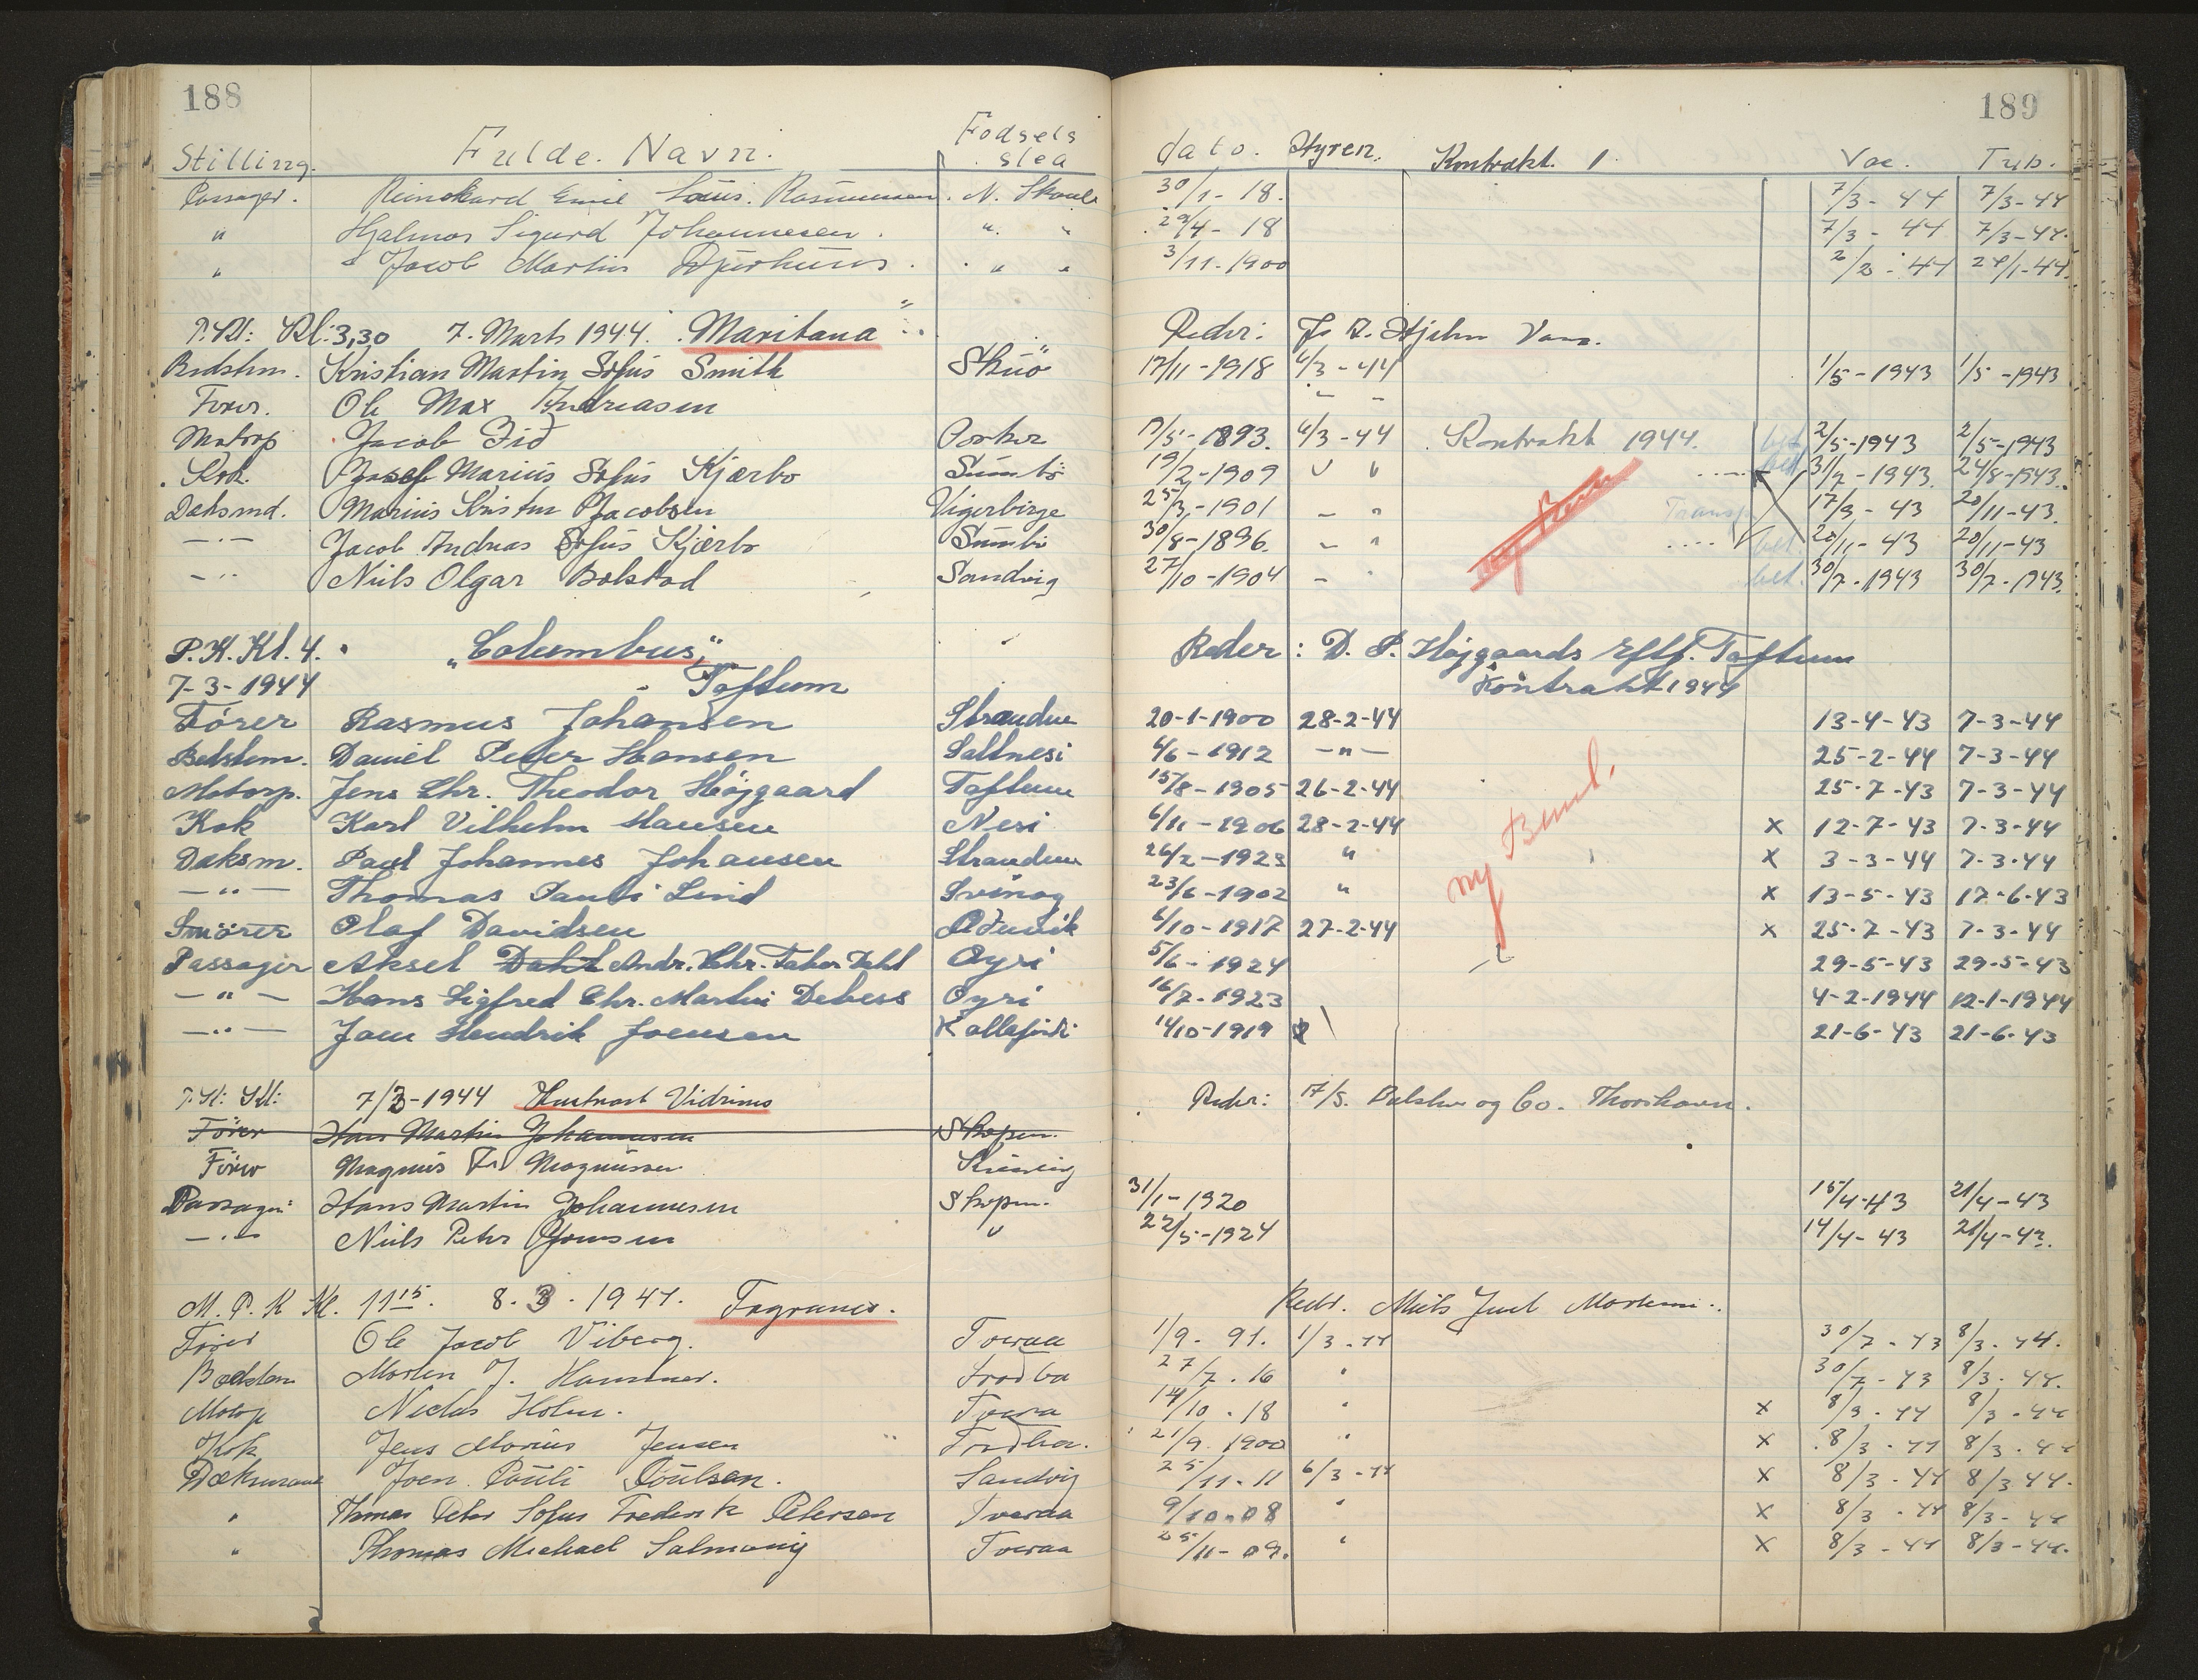 188 189
Stilling. Fulde. Navn. Fodsels slea dato. Hyren. Kontrakt. Vac. Tub.
Passager. Emil Louis. Rasmussen. N. 30/1 - 18. 7/3 - 44 7/3 - 44
" Hjalmar Sigurd Johannesen. " " 29/4 - 18 7/3 - 44 7/3 - 44.
" Jacob Martin Djurhuus. " " 3/11. 1900 2/2 - 44 1-44.
Kl: 3,30 7. Marts 1944. Maritana Reder:
Bedstm. Kristian Martin Sofus Smith Skuö 17/11 - 1918 6/3 - 44 1/5 - 1943 1/5 - 1943
Förer. Ole Max Andreasen
Motorp Jacob Porker 17/5 - 1893. 6/3 - 44 Kontrakt 1944. bet 2/5 - 1943 2/5 - 1943
Kok. Josef Marius Sofus Kjærbo Sumbö 19/2 - 1909 " " bet 31/7 - 1943. 24/8 - 1943.
Dæksmd. Marius Kristen Jacobsen 25/3 - 1901 - " Transp 17/9 - 43 20/11 - 43.
- " - Jacob Andreas Sofus Kjærbo Sumbö 30/8 - 1896. - " bet. 20/11 - 43 20/11 - 43
- " Niels Olgar Bolstad Sandvig 27/10 - 1904 - " bet. 30/7 - 1943 30/7 - 1943.
P. K. Kl. 4. "Columbus," Reder: D. P. Højgaards Eftf. Toftum
7-3-1944 Toftum Kontrakt 1944
Förer Rasmus Johansen 20-1-1900 28-2-44 13-4-43 7-3-44
Bedstem. Daniel Peter Hansen Saltnesi 4/6 - 1912 -"- 25-2-44 7-3-44
Motorp. Jens Chr. Theodor Højgaard Toftum 15/8 - 1905 26-2-44 25-7-43 7-3-44
Kok Karl Vilhelm Hansen Nesi 6/11 - 1906 28-2-44 x 12-7-43 7-3-44
Dæksm. Paul Johannes Johansen 26/2 - 1923 " x 3-3-44 7-3-44
-"- Thomas Pauli Lind Svinoy 23/6 - 1902 " x 13-5-43 17-6-43
Smörer Olaf Davidsen 6/10 - 1917 27-2-44 ny x 25-7-43 7-3-44
Passager Aksel Dahl Andr. Chr. Faber Dahl Oyri 5/6 - 1924 29-5-43 29-5-43
-"- Hans Sigfred Chr. Martin Debess Oyri 16/7 - 1923 4-2-1944 12-1-1944
-"- Hendrik Joensen Kollefjord 14/10 - 1919 21-6-43 21-6-43
7/3 - 1944 Vidrines Reder: og Co. Thorshavn.
Förer Hans Martin Johannesen Skopen.
Förer Magnus Fr. Magnussen
Passager Hans Martin Johannesen Skopen. 31/1 - 1920 15/4 - 43 21/4 - 43
- " - Niels Peter Joensen " 22/5 - 1924 14/4 - 43 21/4 - 43.
M. P. K Kl. 11 15. 8. 3. 1944. Fagranes. Reder. Niels Juel Mortensen.
Förer Ole Jacob Viberg. Tveraa 1/9 - 91. 1/3 - 44 30/7 - 43 8/3 - 44.
Bedstem Morten J. Hammer. Frodba 27/7 - 16 " 30/7 - 43 8/3 - 44.
Motop Niclas Holm. Tveraa 14/10 - 18 " x 8/3 - 44 8/3 - 44
Kok Jens Marius Jensen Frodba. 21/9 1900 " x 8/3 - 44 8/3 - 44
Dæksmand Joen Pouli Poulsen. Sandvig 25/11 - 11 6/3 - 44 x 8/3 - 44 8/3 44.
" Thomas Peter Sofus Frederik Petersen Tveraa 9/10 - 08 " x 8/3 - 44 8/3 - 44
" Thomas Michael Salmonig Tveraa 25/11 - 09. " x 8/3 - 44 8/3 - 44.